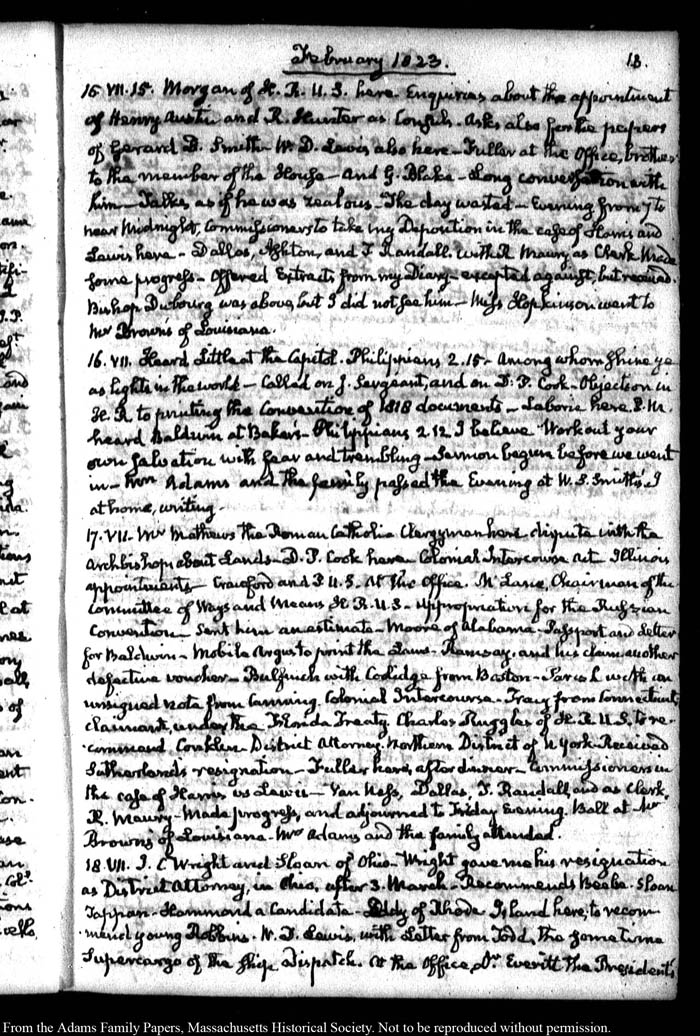 February 1823.
13.
15 VII.15. Morgan of H. R. U.S. here. Enquiries about the appointment
of Henry Austin and R. Hunter as Consuls. Asks also for the papers
of Gerard D. Smith. W. D. Lewis also here — Fuller at the Office, brother
to the member of the House — and G. Blake — Long conversation with
him — Talks as if he was zealous — The day wasted — Evening from 7 to
near Midnight, Commissioners to take my Deposition in the case of Harris and
Lewis here — Dallas, Ashton, and T. Randall. with R Maury as Clerk. Made
some progress — Offered Extracts from my Diary — excepted against, but received.
Bishop Dubourg was above, but I did not see him — Miss Hopkinson went to
Mr Brown's of Louisiana.
16. VII. Heard Little at the Capitol. Philippians 2.15. Among whom shine ye
as lights in the world — Called on J. Sergeant, and on D. P. Cook — Objection in
H. R. to printing the Convention of 1818 documents — Laborie here. P.M.
heard Baldwin at Baker's — Philippians 2 12 I believe Work out your
own salvation with fear and trembling — Sermon begun before we went
in — Mrs Adams and the family passed the Evening at W. S. Smith's. I
at home, writing.
17. VII. Mr Mathews the Roman Catholic Clergyman here dispute with the
Archbishop about Lands — D. P. Cook here Colonial Intercourse Act Illinois
appointments — Crawford and P U.S. At the Office. McLane, Chairman of the
Committee of Ways and Means H. R. U.S. Appropriation for the Russian
Convention — Sent him an estimate — Moore of Alabama — Passport and Letter
for Baldwin — Mobile Argus to print the Laws — Ramsay, and his claim another
defective voucher — Bulfinch with Coolidge from Boston — with an
unsigned note from Canning. Colonial Intercourse — Tracy from Connecticut
claimant, under the Florida Treaty. Charles Ruggles of H. R. U.S. to re-
commend Conklin District Attorney. Northern District of N York. Received
Sutherland's resignation — Fuller here, after dinner — Commissioners in
the case of Harris vs Lewis — Van Ness, Dallas, T. Randall, and as Clerk,
R. Maury — Made progress, and adjourned to Friday Evening. Ball at Mr
Brown's of Louisiana — Mrs Adams and the family attended.
18. VII. J. C Wright and Sloan of Ohio — Wright gave me his resignation
as District Attorney, in Ohio, after 3. March — Recommends Beebe. Sloan
Tappan. Hammond a Candidate — Eddy of Rhode Island here, to recom
mend young Robbins. W. D. Lewis, with Letter from Todd, the sometime
Supercargo of the ship Dispatch. At the Office, Dr Everett the President's
From the Adams Family Papers, Massachusetts Historical Society. Not to be reproduced without permission.